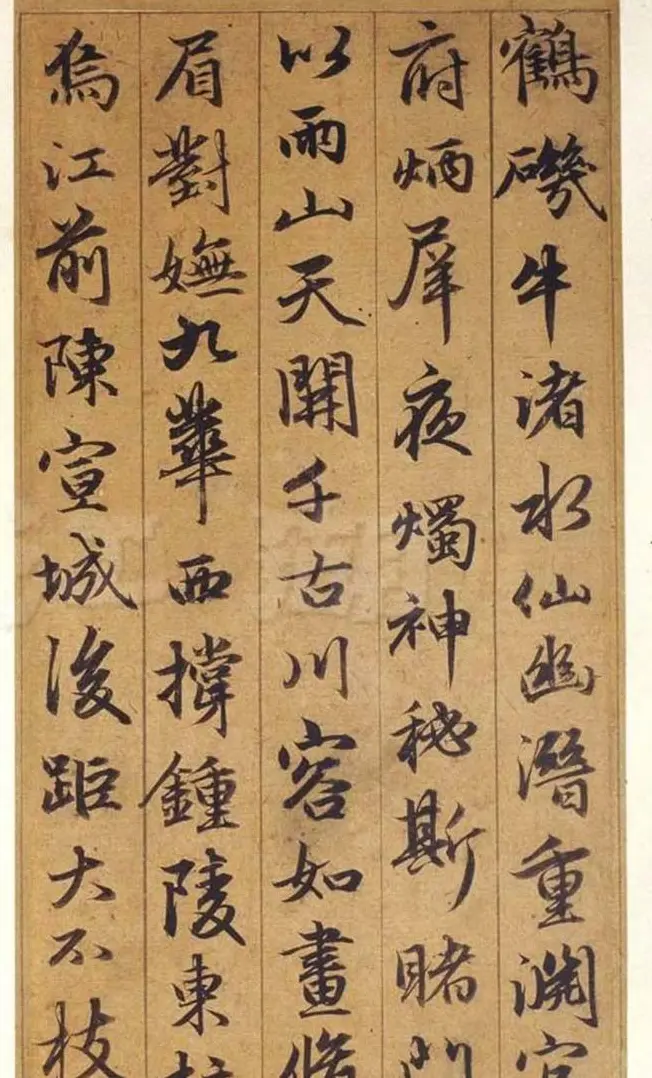 鶴磯牛渚水仙幽潛重淵宮
府炳犀夜燭神秘斯睹門
以兩山天開千古川容如畫脩
眉對嫵九華西撐鍾陵東
烏江前陳宣城後距大不枝